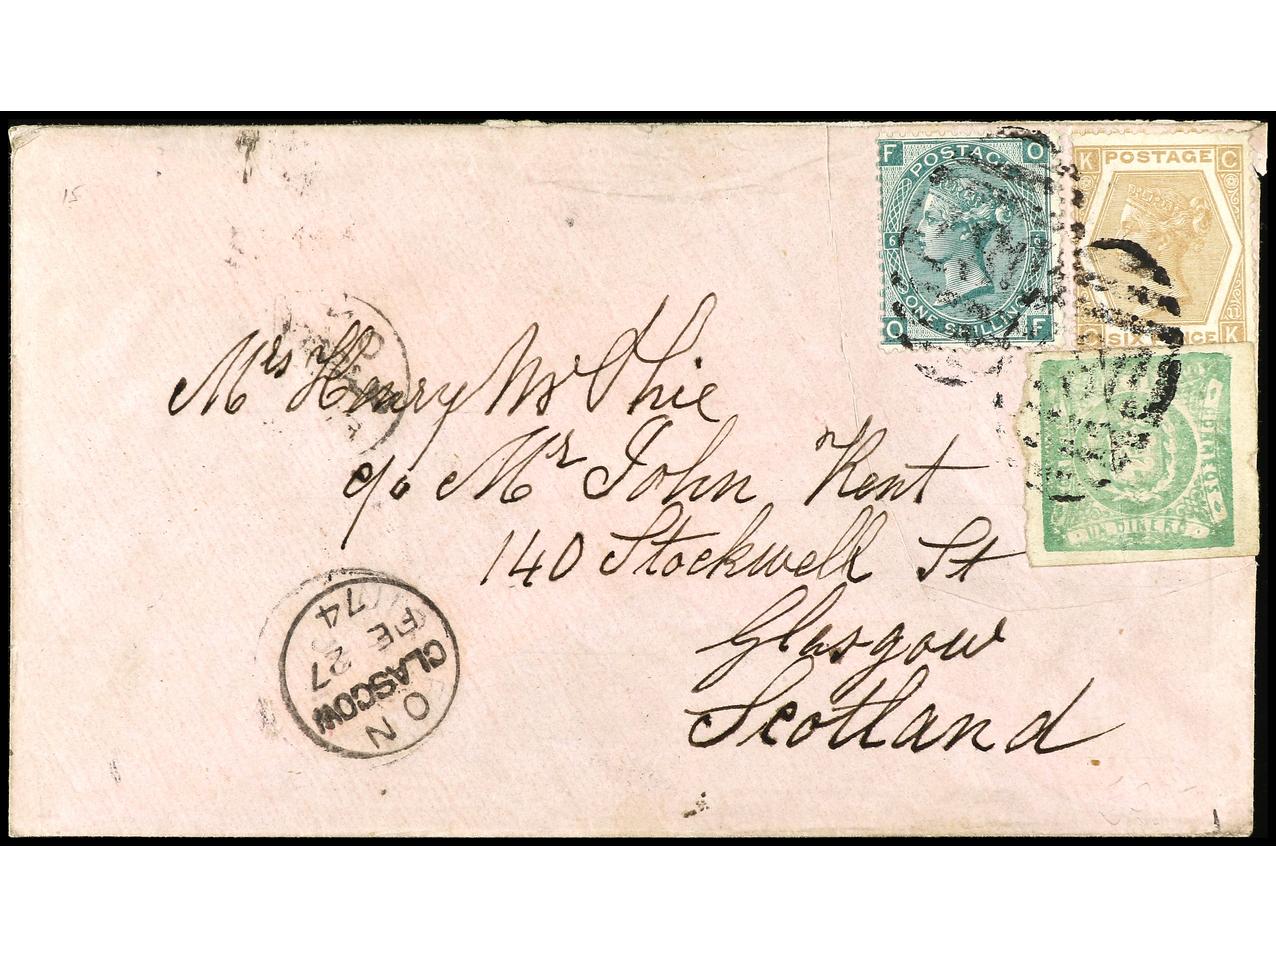 15
F POSTAGE O
6
ONE SHILLING
O F
K POSTAGE C
11
SIXPENCE
C K
UN DINERO
Mrs Henry McPhie
c/o Mr John Kent
140 Stockwell St
Glasgow
Scotland
GLASGOW
FE 27
74